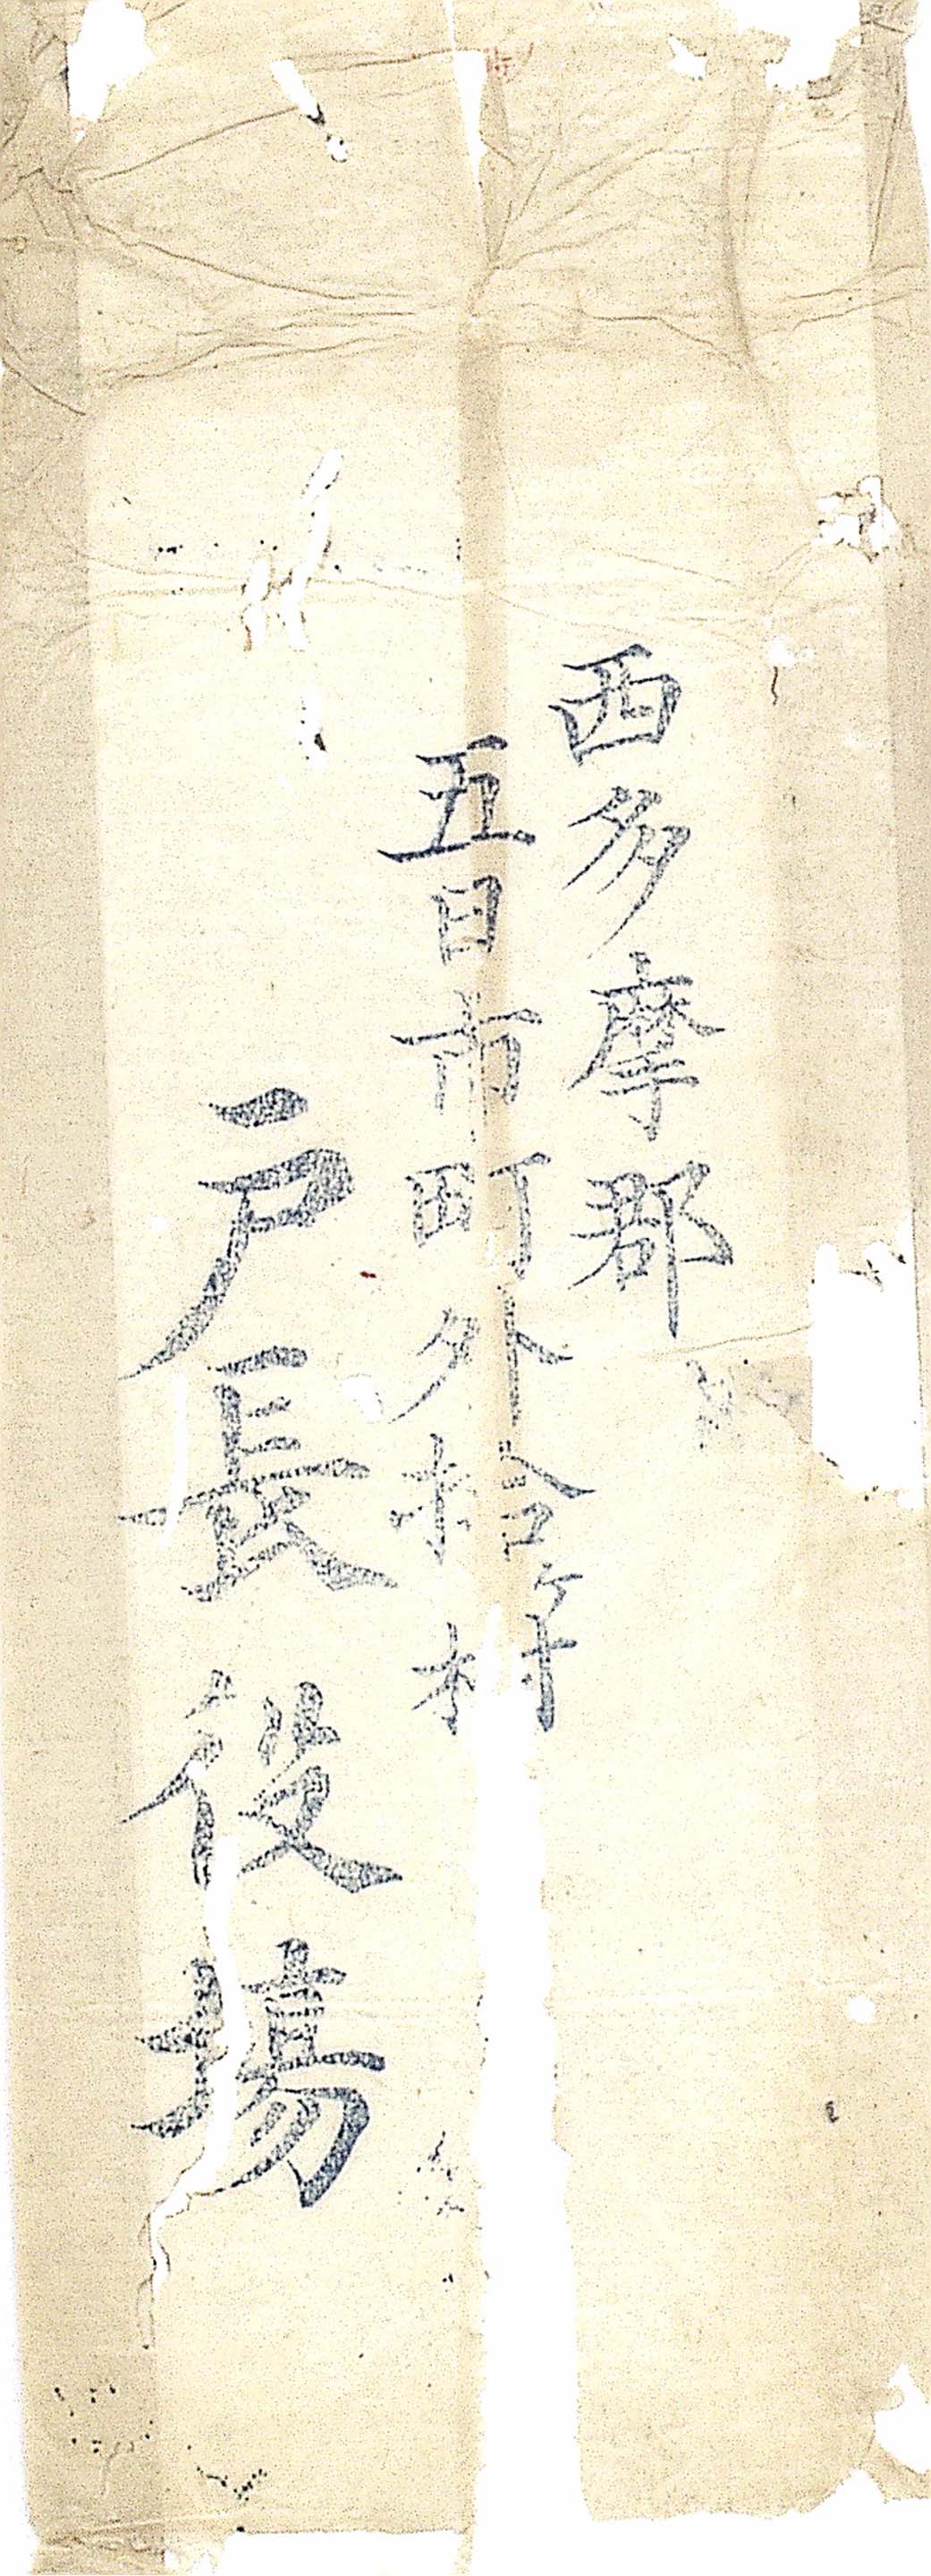 西多摩郡
五日市町外拾ヶ村
戸長役場